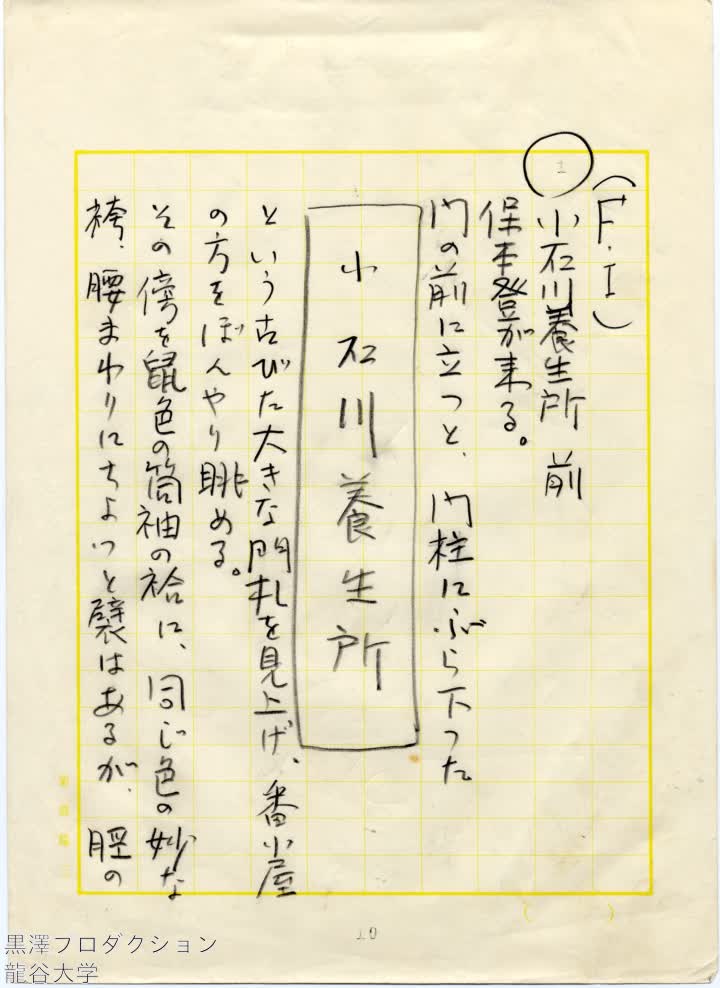 1
(F.I)
小石川養生所 前
保本登が来る。
門の前に立つと、門柱にぶら下つた
小石川養生所
という古びた大きな門札を見上げ、番小屋
の方をぼんやり眺める。
その傍を鼠色の筒袖の袷に、同じ色の妙な
袴、腰まわりにちよつと襞はあるが、脛の
10
黒澤フロダクション
龍谷大学